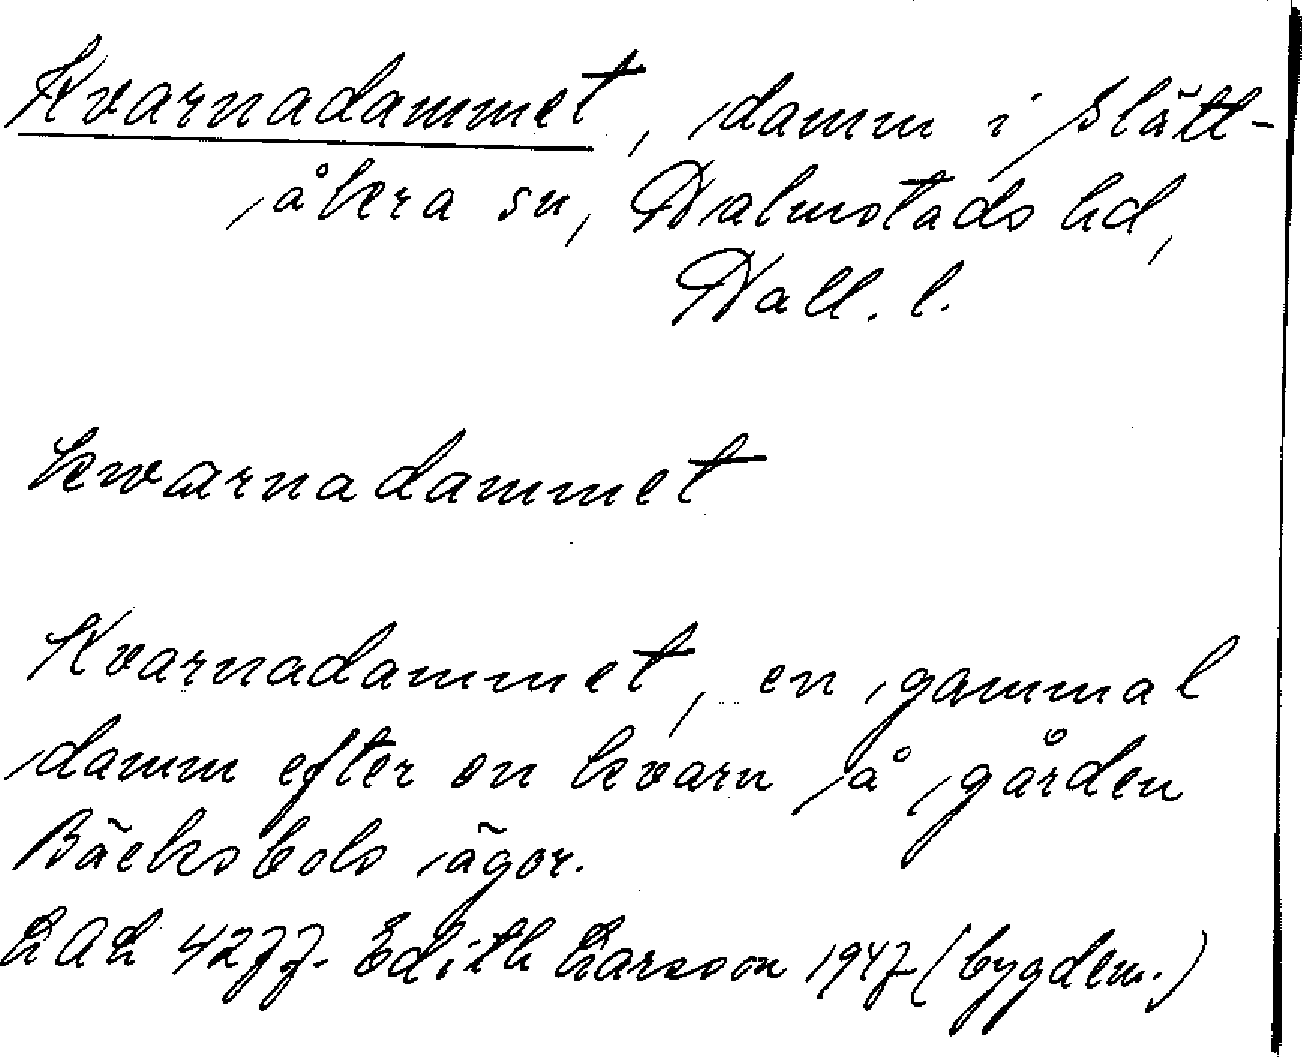 Kvarnadammet, damm i Slätt-
åkra sn, Halmstads hd,
Hall. l.
kwarnadammet
Kvarnadammet, en gammal
damm efter en kvarn å gården
Bäcksbols ägor.
LAL 4277. Edith Larsson 1947 (bygdem.)